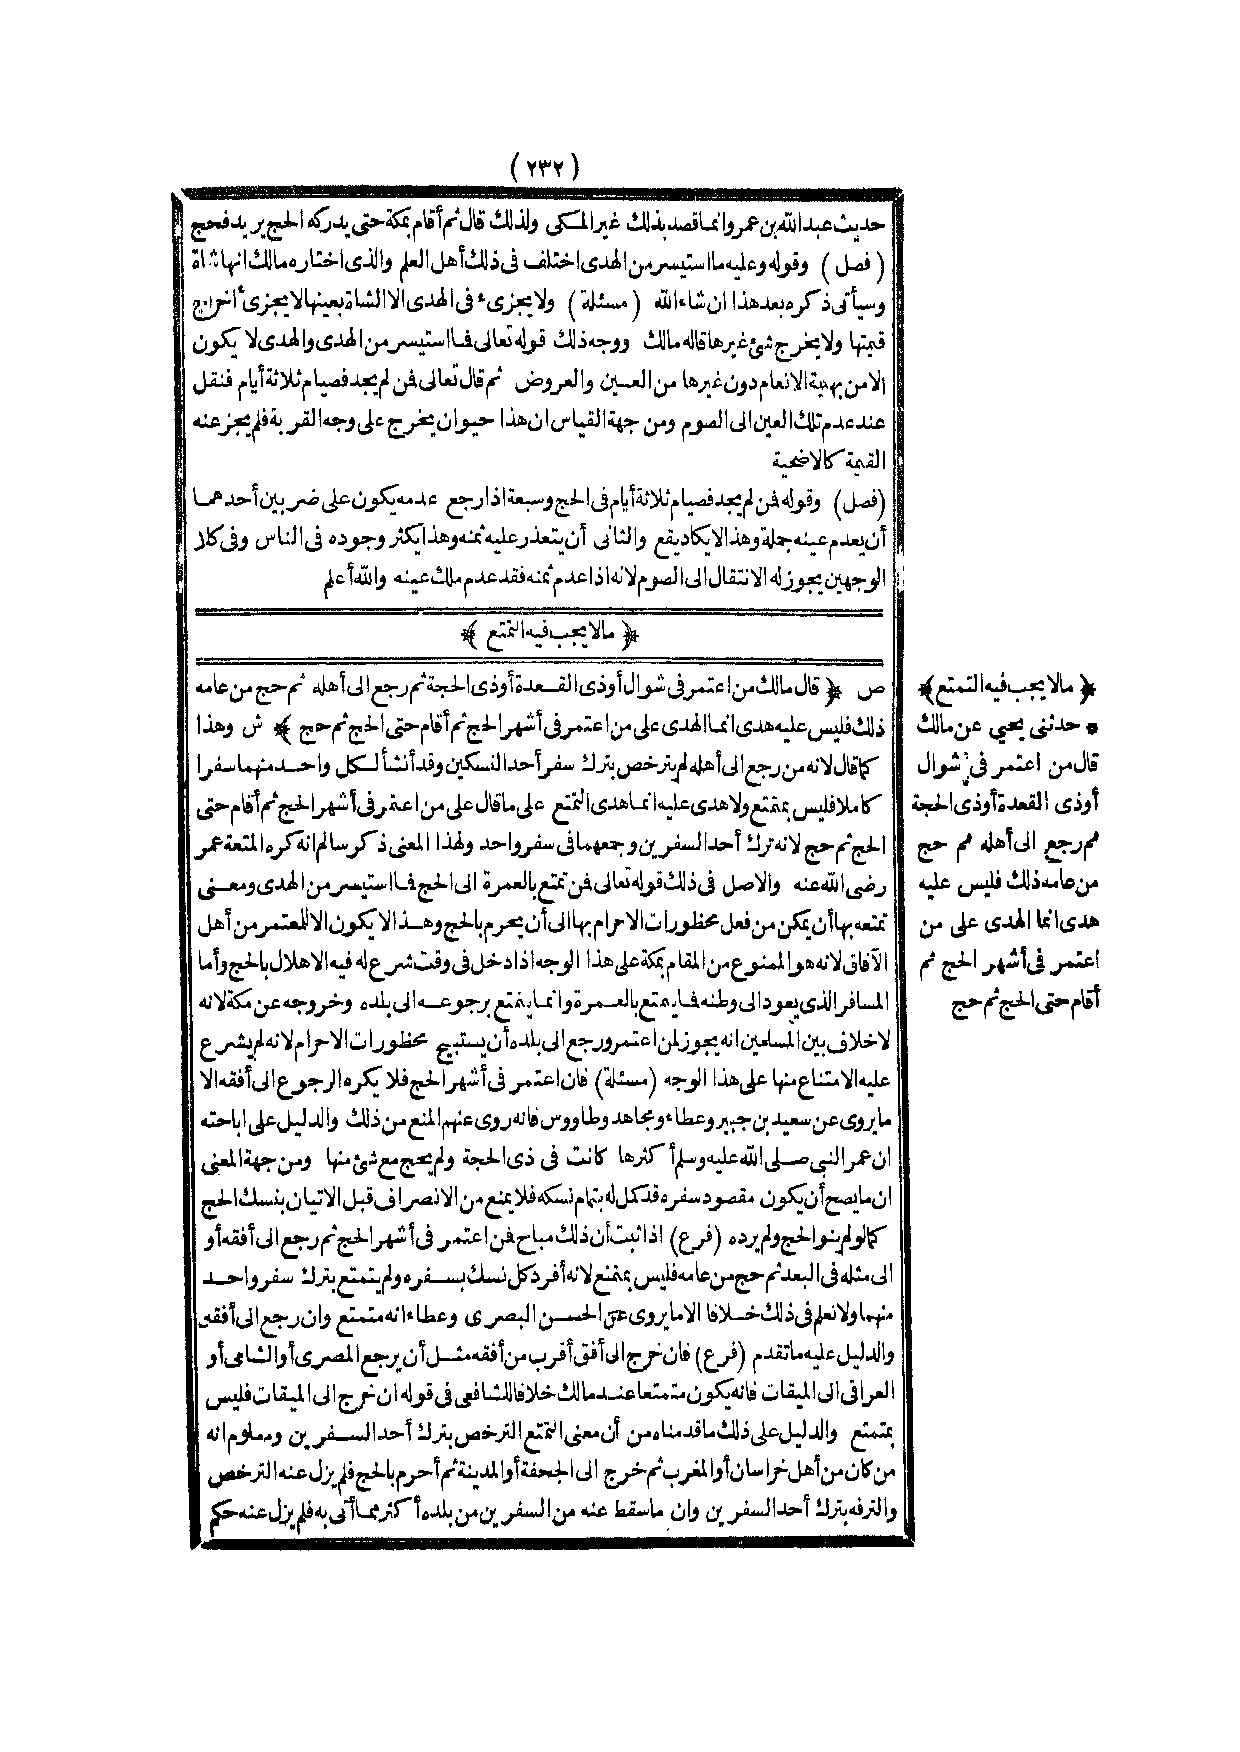 ( ٢٣٢ )
حديث عبد الله بن عمر وانما قصد بذلك غير المكى ولذلك قال ثم أقام بمكة حتى يدركه الحج يريد فحج
( فصل ) وقوله وعليه ما استيسر من الهدى اختلف فى ذلك أهل العلم والذى اختاره مالك انها شاة
وسيأتى ذكره بعد هذا ان شاء الله ( مسئلة ) ولا يجزىء فى الهدى الا الشاة بعينها لا يجزىء اخراج
قيمتها ولا يخرج شئ غيرها قاله مالك ووجه ذلك قوله تعالى فما استيسر من الهدى والهدى لا يكون
الا من بهيمة الانعام دون غيرها من العين والعروض ثم قال تعالى فمن لم يجد فصيام ثلاثة أيام فنقل
عند عدم تلك العين الى الصوم ومن جهة القياس ان هذا حيوان يخرج على وجه القربة فلم يجز عنه
القيمة كالاضحية
(فصل) وقوله فمن لم يجد فصيام ثلاثة أيام فى الحج وسبعة اذا رجع عدمه يكون على ضربين أحدهما
أن يعدم عينه جملة وهذا لا يكاد يقع والثانى أن يتعذر عليه ثمنه وهذا يكثر وجوده فى الناس وفى كلا
الوجهين يجوز له الانتقال الى الصوم لانه اذا عدم ثمنه فقد عدم ملك عينه والله أعلم
﴿ مالا يجب فيه التمتع ﴾
ص ﴿ قال مالك من اعتمر فى شوال أوذى القعدة أوذى الحجة ثم رجع الى أهله ثم حج من عامه
ذلك فليس عليه هدى انما الهدى على من اعتمر فى أشهر الحج ثم أقام حتى الحج ثم حج ﴾ ش وهذا
كما قال لانه من رجع الى أهله لم يترخص بترك سفر أحد النسكين وقد أنشأ لكل واحد منهما سفرا
كاملا فليس بمتمتع ولا هدى عليه انما هدى التمتع على ما قال على من اعتمر فى أشهر الحج ثم أقام حتى
الحج ثم حج لانه ترك أحد السفرين وجمعهما فى سفر واحد ولهذا المعنى ذكر سالم انه كره المتعة عمر
رضى الله عنه والاصل فى ذلك قوله تعالى فمن تمتع بالعمرة الى الحج فما استيسر من الهدى ومعنى
تمتعه بها أن يمكن من فعل محظورات الاحرام بها الى أن يحرم بالحج وهذا لا يكون الا للمعتمر من أهل
الآفاق لانه هو الممنوع من المقام بمكة على هذا الوجه اذا دخل فى وقت شرع له فيه الاهلال بالحج وأما
المسافر الذى يعود الى وطنه فما يتمتع بالعمرة وانما يتمتع برجوعه الى بلده وخروجه عن مكة لانه
لا خلاف بين المسلمين انه يجوز لمن اعتمر ورجع الى بلده أن يستبيح محظورات الاحرام لانه لم يشرع
عليه الامتناع منها على هذا الوجه (مسئلة) فان اعتمر فى أشهر الحج فلا يكره الرجوع الى أفقه الا
ما يروى عن سعيد بن جبير وعطاء ومجاهد وطاووس فانه روى عنهم المنع من ذلك والدليل على اباحته
ان عمر النبى صلى الله عليه وسلم أكثرها كانت فى ذى الحجة ولم يحج مع شئ منها ومن جهة المعنى
ان ما يصح أن يكون مقصود سفره قد كمل له بتمام نسكه فلا يمنع من الانصراف قبل الاتيان بنسك الحج
كما لو لم ينو الحج ولم يرده (فرع) اذا ثبت أن ذلك مباح فمن اعتمر فى أشهر الحج ثم رجع الى أفقه أو
الى مثله فى البعد ثم حج من عامه فليس بمتمتع لانه أفرد كل نسك بسفره ولم يتمتع بترك سفر واحد
منهما ولا نعلم فى ذلك خلافا الا ما يروى عن الحسن البصرى وعطاء انه متمتع وان رجع الى أفقه
والدليل عليه ما تقدم (فرع) فان خرج الى أفق أقرب من أفقه مثل أن يرجع المصرى أو الشامى أو
العراقى الى الميقات فانه يكون متمتعا عند مالك خلافا للشافعى فى قوله ان خرج الى الميقات فليس
بمتمتع والدليل على ذلك ما قدمناه من أن معنى التمتع الترخص بترك أحد السفرين ومعلوم انه
من كان من أهل خراسان أو المغرب ثم خرج الى الجحفة أو المدينة ثم أحرم بالحج فلم يزل عنه الترخص
والترفه بترك أحد السفرين وان ما سقط عنه من السفرين من بلده أكثر مما أتى به فلم يزل عنه حكم
﴿ مالا يجب فيه التمتع ﴾
* حدثنى يحيى عن مالك
قال من اعتمر فى شوال
أوذى القعدة أوذى الحجة
ثم رجع الى أهله ثم حج
من عامه ذلك فليس عليه
هدى انما الهدى على من
اعتمر فى أشهر الحج ثم
أقام حتى الحج ثم حج